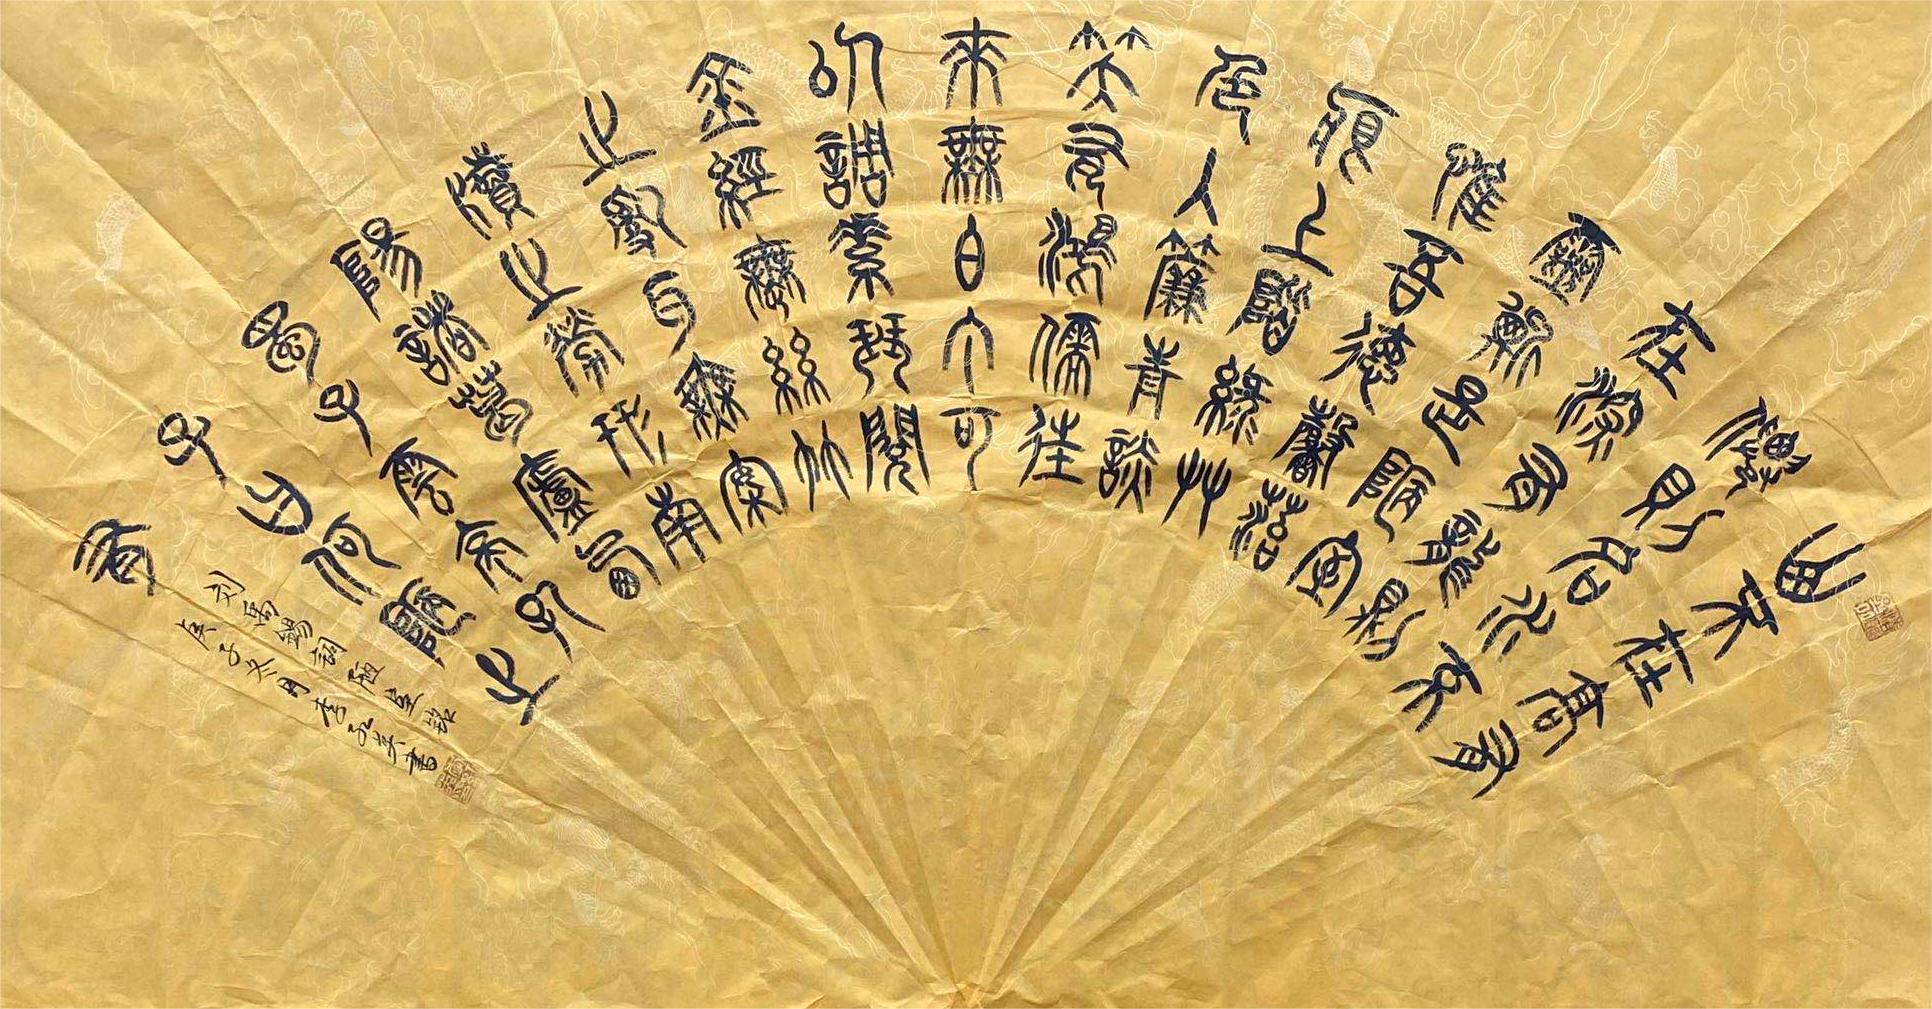 山不在高有
僊則名水不
在深有龍則
靈斯是陋室
惟吾德馨苔
痕上階綠艸
色入簾青談
笑有鴻儒往
來無白丁可
以調素琴閱
金經無絲竹
之亂耳無案
牘之勞形南
陽諸葛廬西
蜀子雲亭孔
子曰何陋之
有
刘禹錫詞陋室铭
庚子冬月李書